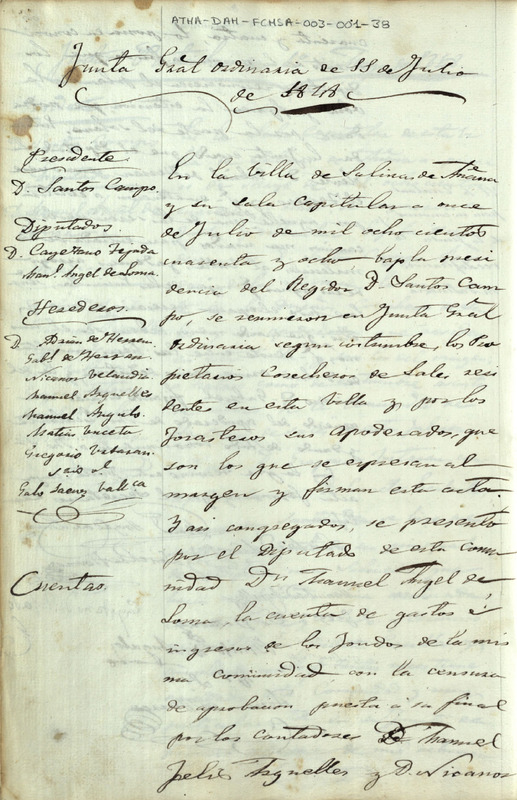 ATHA-DAH-FCHSA-003-001-38
Junta Gral ordinaria de 11 de Julio
de 1848
Presidente
D. Santos Campo.
Diputados.
D. Cayetano Tejada
Man.l Angel de Loma.
Herederos.
D. de Herran
Gabl de Herran
Nicanor Velandia
Manuel Arguelles
Manuel Angulo.
Matias Uruceta
Gregorio
Galo Saenz
Cuentas
En la Villa de Salinas de Añana
y su sala capitular a once
de Julio de mil ocho cientos
cuarenta y ocho, bajo la presi
dencia del Regidor D. Santos Cam
po, se reunieron en Junta Gral
ordinaria segun costumbre, los Pro
pietarios Cosecheros de Sales resi
dentes en esta Villa y por los
forasteros sus apoderados, que
son los que se espresan al
margen y firman esta acta.
Y asi congregados, se presento
por el Diputado de esta Comu
nidad Dn Manuel Angel de
Loma, la cuenta de gastos é
ingresos de los fondos de la mis
ma comunidad con la censura
de aprobacion puesta a su final
por los contadores D. Manuel
Felix Arguelles y D. Nicanor